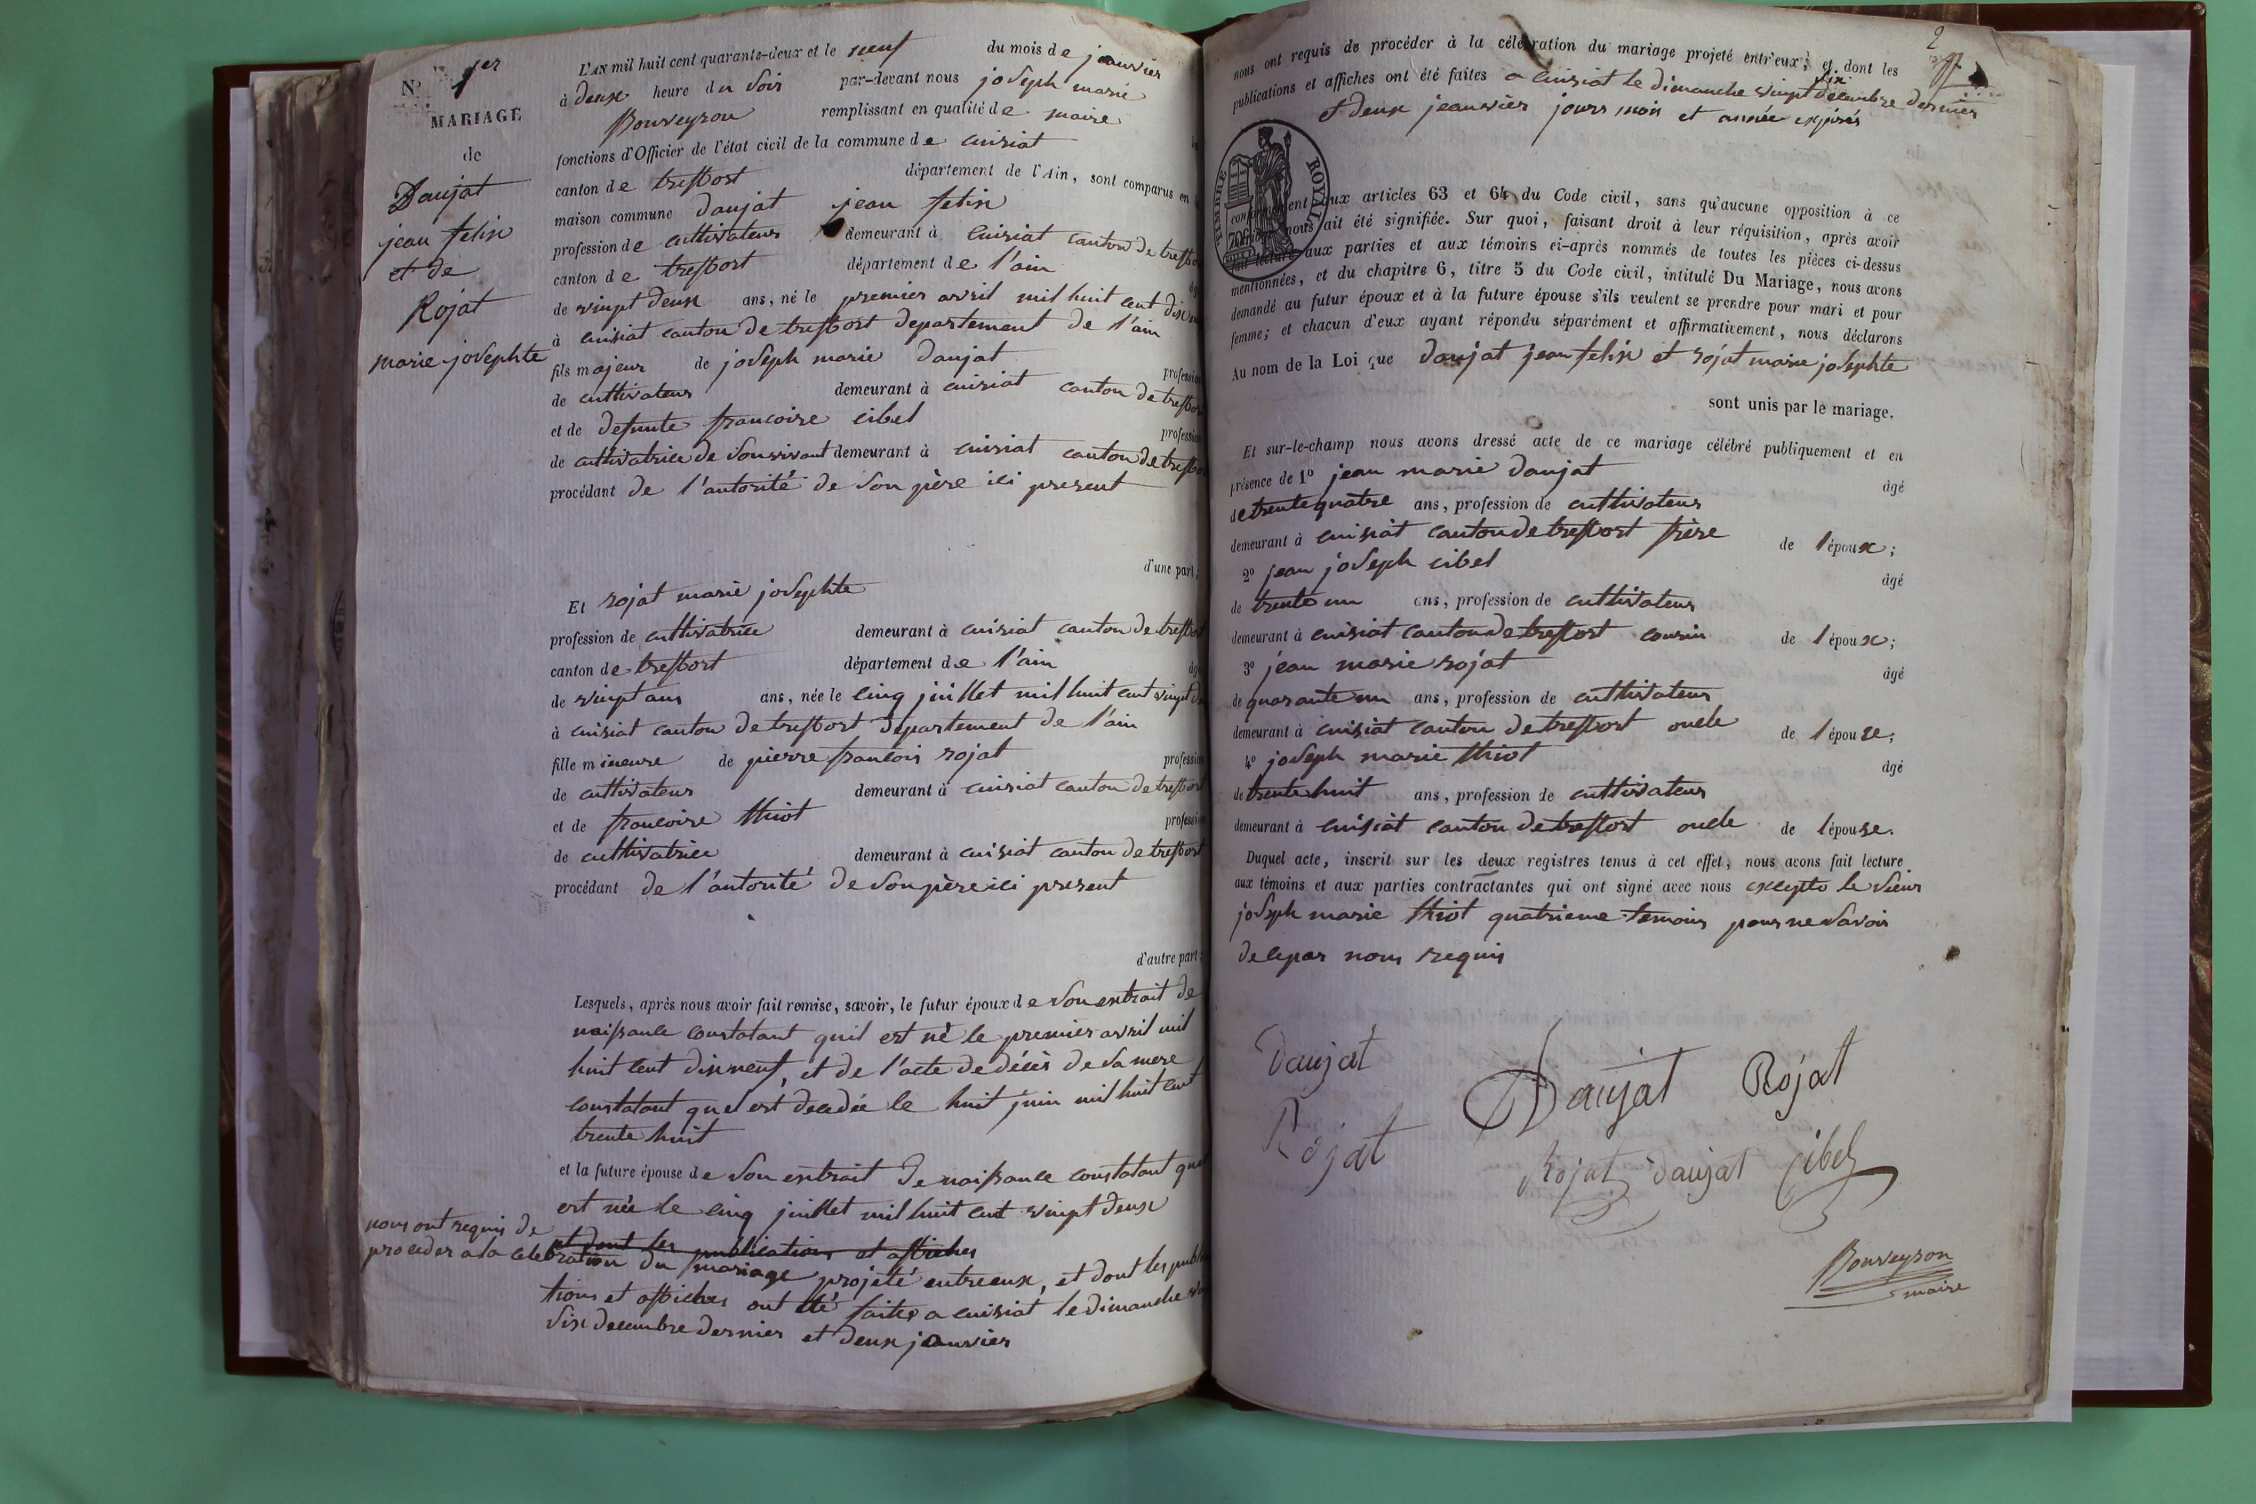 N° 1er
MARIAGE
de
Daujat
jean felix
et de
Rojat
marie josephte
L'AN mil huit cent quarante-deux et le neuf du mois de jeanvier
à deux heure du soir par-devant nous joseph marie
Bouveyron remplissant en qualité de maire
fonctions d'Officier de l'état civil de la commune de cuisiat
canton de treffort département de l'Ain, sont comparus en
maison commune daujat jean felix
profession de cultivateur demeurant à cuisiat canton de treffort
canton de treffort département de l'ain
de vingt deux ans, né le premier avril mil huit cent dix
à cuisiat canton de treffort departement de l'ain
fils majeur de joseph marie daujat profession
de cultivateur demeurant à cuisiat canton de treffort
et de defunte francoise cibel profession
de cultivatrice de son vivant demeurant à cuisiat canton de treffort
procédant de l'autorité de son père ici present
d'une part;
Et rojat marie josephte
profession de cultivatrice demeurant à cuisiat canton de treffort
canton de treffort département de l'ain âgé
de vingt ans ans, née le cinq juillet mil huit cent vingt
à cuisiat canton de treffort departement de l'ain
fille mineure de pierre francois rojat profession
de cultivateur demeurant à cuisiat canton de treffort
et de francoise thiot profession
de cultivatrice demeurant à cuisiat canton de treffort
procédant de l'autorité de son père ici present
d'autre part;
Lesquels, après nous avoir fait remise, savoir, le futur époux de son extrait de
naissance constatant quil est né le premier avril mil
huit cent dixneuf, et de l'acte de décès de sa mere
constatant quel est decedée le huit juin mil huit cent
trente huit
et la future épouse de son extrait de naissance constatant quel
est née le cinq juillet mil huit cent vingt deux
et dont les publications et affiches
nous ont requis de
proceder a la celebration du mariage projeté entreeux, et dont les publica
tions et affiches ont été faites a cuisiat le dimanche
six decembre dernier et deux jeanvier
2
nous ont requis de procéder à la célébration du mariage projeté entr'eux, et dont les
six
publications et affiches ont été faites a cuisiat le dimanche vingt decembre dernier
et deux jeanvier jours mois et année expirés
TIMBRE ROYAL
70c
conformément aux articles 63 et 64 du Code civil, sans qu'aucune opposition à ce
mariage nous ait été signifiée. Sur quoi, faisant droit à leur réquisition, après avoir
fait lecture aux parties et aux témoins ci-après nommés de toutes les pièces ci-dessus
mentionnées, et du chapitre 6, titre 5 du Code civil, intitulé Du Mariage, nous avons
demandé au futur époux et à la future épouse s'ils veulent se prendre pour mari et pour
femme; et chacun d'eux ayant répondu séparément et affirmativement, nous déclarons
Au nom de la Loi que daujat jean felix et rojat marie josephte
sont unis par le mariage.
Et sur-le-champ nous avons dressé acte de ce mariage célébré publiquement et en
présence de 1° jean marie daujat âgé
de trente quatre ans, profession de cultivateur
demeurant à cuisiat canton de treffort frère de l'époux;
2° jean joseph cibel âgé
de trente un ans, profession de cultivateur
demeurant à cuisiat canton de treffort cousin de l'époux;
3° jean marie rojat âgé
de quarante un ans, profession de cultivateur
demeurant à cuisiat canton de treffort oncle de l'épouse;
4° joseph marie thiot âgé
de trente huit ans, profession de cultivateur
demeurant à cuisiat canton de treffort oncle de l'épouse.
Duquel acte, inscrit sur les deux registres tenus à cet effet, nous avons fait lecture
aux témoins et aux parties contractantes qui ont signé avec nous excepto le sieur
joseph marie thiot quatrieme temoin pour ne savoir
de ce par nous requis
Daujat Daujat Rojat
Rojat Rojat daujat Cibel
Bouveyron
maire